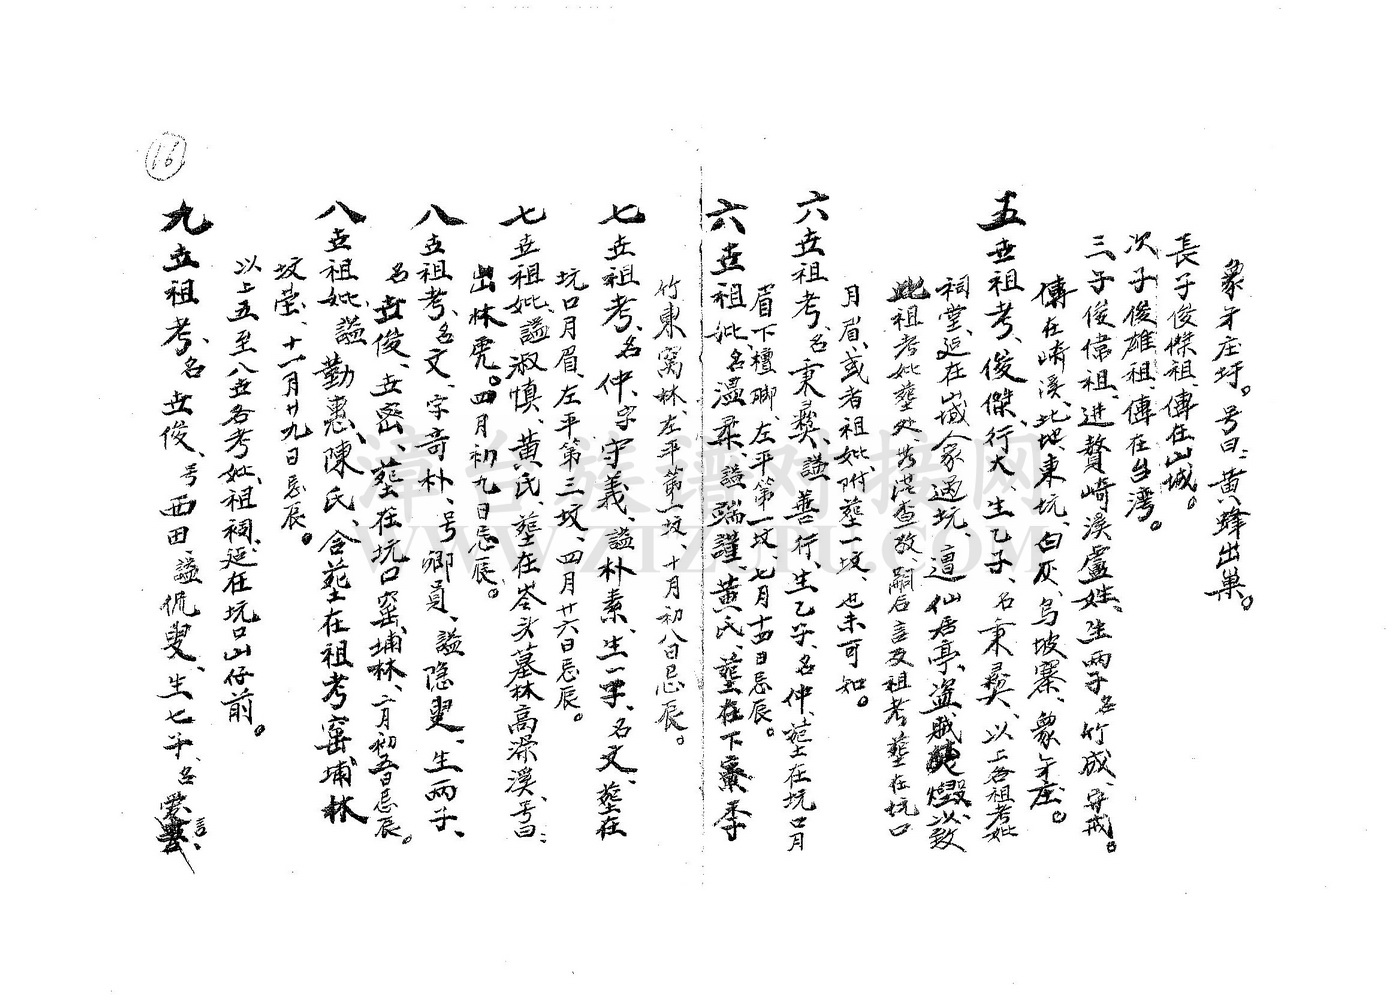 象牙庄圩。号曰：黄蜂出巢。
長子俊傑祖、傳在山城。
次子俊雄祖、傳在台灣。
三子俊偉祖、進贅崎溪盧姓、生兩子、名竹成、守戒。
傳在崎溪、北地東坑、白灰、烏坡寨、象牙庄。
五世祖考、俊傑、行大、生乙子、名秉彛、以上各祖考妣
祠堂、延在城人家過坑、仙居亭、盜賊燬以致
此祖考妣塟处查攷、嗣后言及祖考塟在坑口
月眉、或者祖妣附塟一坟、也未可知。
六世祖考、名秉彛、謚善行、生乙子、名仲、塟在坑口月
眉下檀脚、左平第一坟、七月十四日忌辰。
六世祖妣、名溫柔、謚端謹、黄氏、塟在下
竹東窩林、左平第一坟、十月初八日忌辰。
七世祖考、名仲、字守義、謚朴素、生一子、名文、塟在
坑口月眉、左平第三坟、四月廿六日忌辰。
七世祖妣、謚淑慎、黄氏、塟在岑头墓林高深溪、号曰：
出林虎。四月初九日忌辰。
八世祖考、名文、字奇朴、号鄉員、謚隐叟、生兩子、
名世俊、世密、塟在坑口窑埔林、二月初五日忌辰。
八世祖妣、謚勤惠、陳氏、合塟在祖考窑埔林
坟莹、十一月廿九日忌辰。
以上五至八世各考妣、祖祠、延在坑口山仔前。
九世祖考、名世俊、号西田、謚侃叟、生七子、名
16
漳台族譜对接网
WWW.ZTZUPU.COM